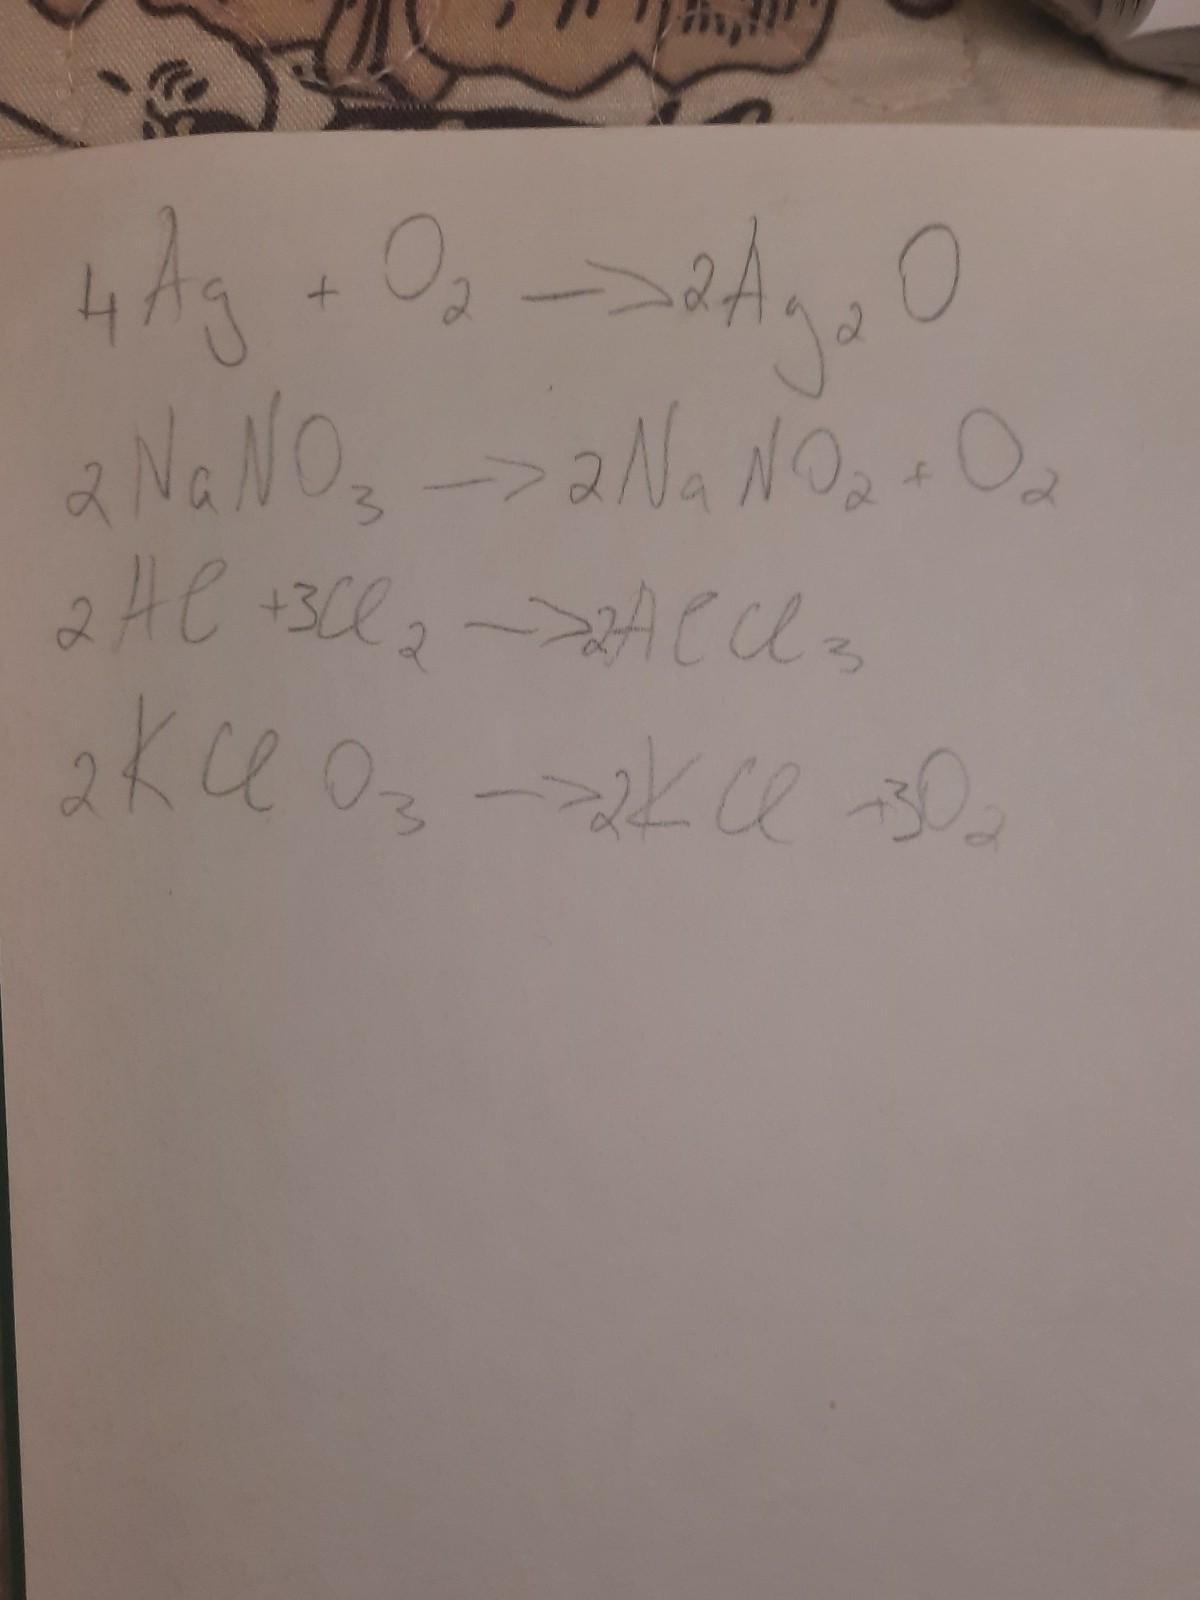 4Ag + O₂ → 2Ag₂O
2NaNO₃ → 2NaNO₂ + O₂
2Al + 3Cl₂ → 2AlCl₃
2KClO₃ → 2KCl + 3O₂